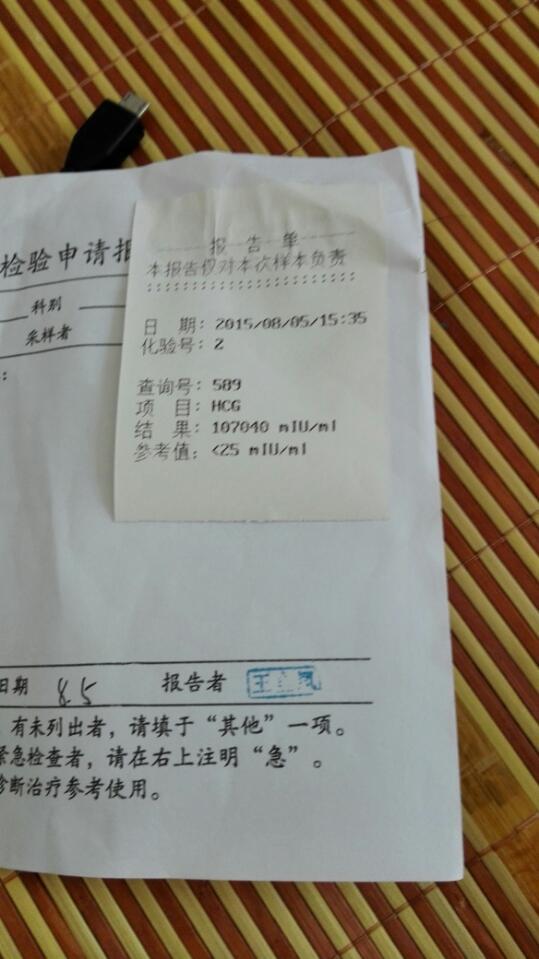 检验申请报
科别
采样者
报 告 单
本报告仅对本次样本负责
日 期: 2015/08/05/15:35
化验号: 2
查询号: 589
项 目: HCG
结 果: 107040 mIU/ml
参考值: <25 mIU/ml
日期 8.5 报告者 王
有未列出者，请填于“其他”一项。
紧急检查者，请在右上注明“急”。
诊断治疗参考使用。